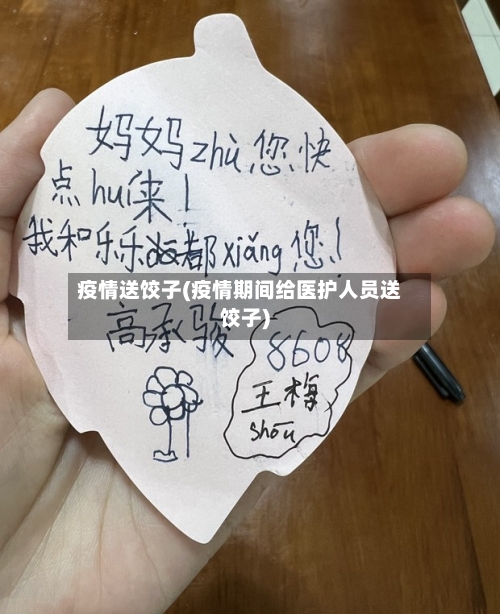 妈妈zhù您快
点hui来！
我和乐乐都xiǎng您！
疫情送饺子(疫情期间给医护人员送
饺子)
高承骏
8608
王梅
shōu